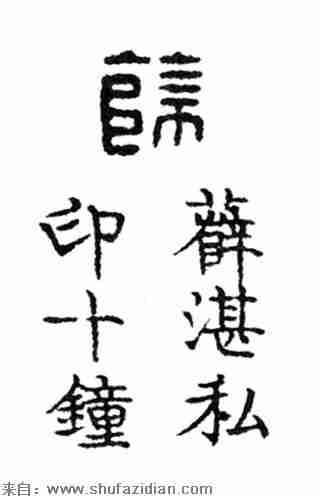 薛湛私
印十鐘
来自：www.shufazidian.com